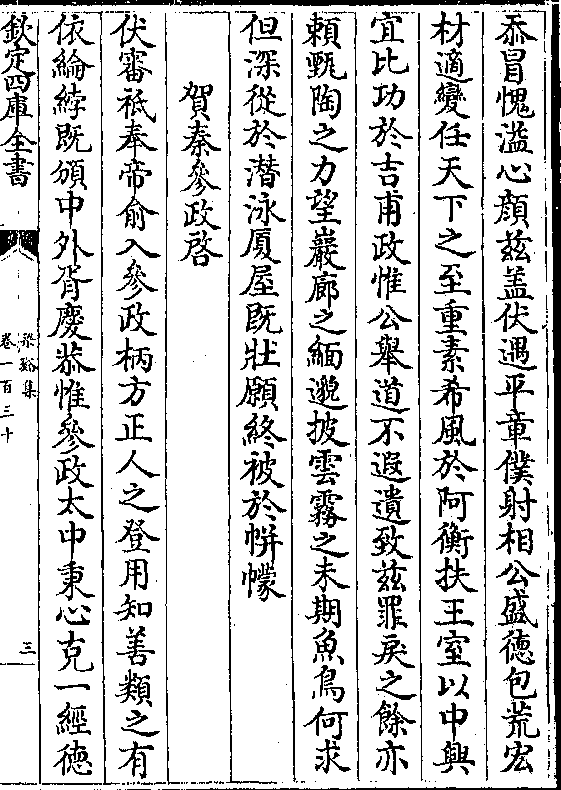 忝冒愧溢心顔兹盖伏遇平章僕射相公盛徳包荒宏
材適變任天下之至重素希風於阿衡扶王室以中興
宜比功於吉甫政惟公舉道不遐遺致兹罪戾之餘亦
頼甄陶之力望巖廊之緬邈披雲霧之未期魚鳥何求
但深從於潜泳厦屋既壯願終被於帲幪
賀秦參政啓
伏審祗奉帝俞入參政柄方正人之登用知善類之有
依綸綍既頒中外胥慶恭惟參政太中秉心克一經徳
欽定四庫全書
梁谿集
卷一百三十
三